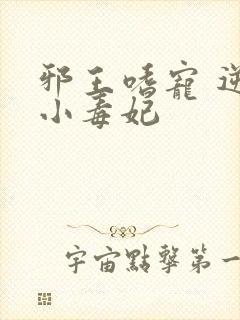 邪王嗜寵 逆
小毒妃
宇宙點擊第一